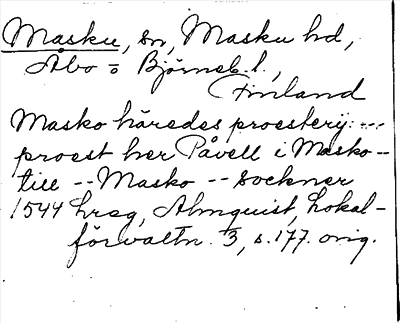 Masku, sn, Masku hd,
Åbo o Björneb. l.,
Finland
Masko häredes proesterij: ---
proest her Påvell i Masko --
till -- Masko -- sockner
1544 hrsg, Almquist, Lokal-
förvaltn. 3, s. 177. orig.